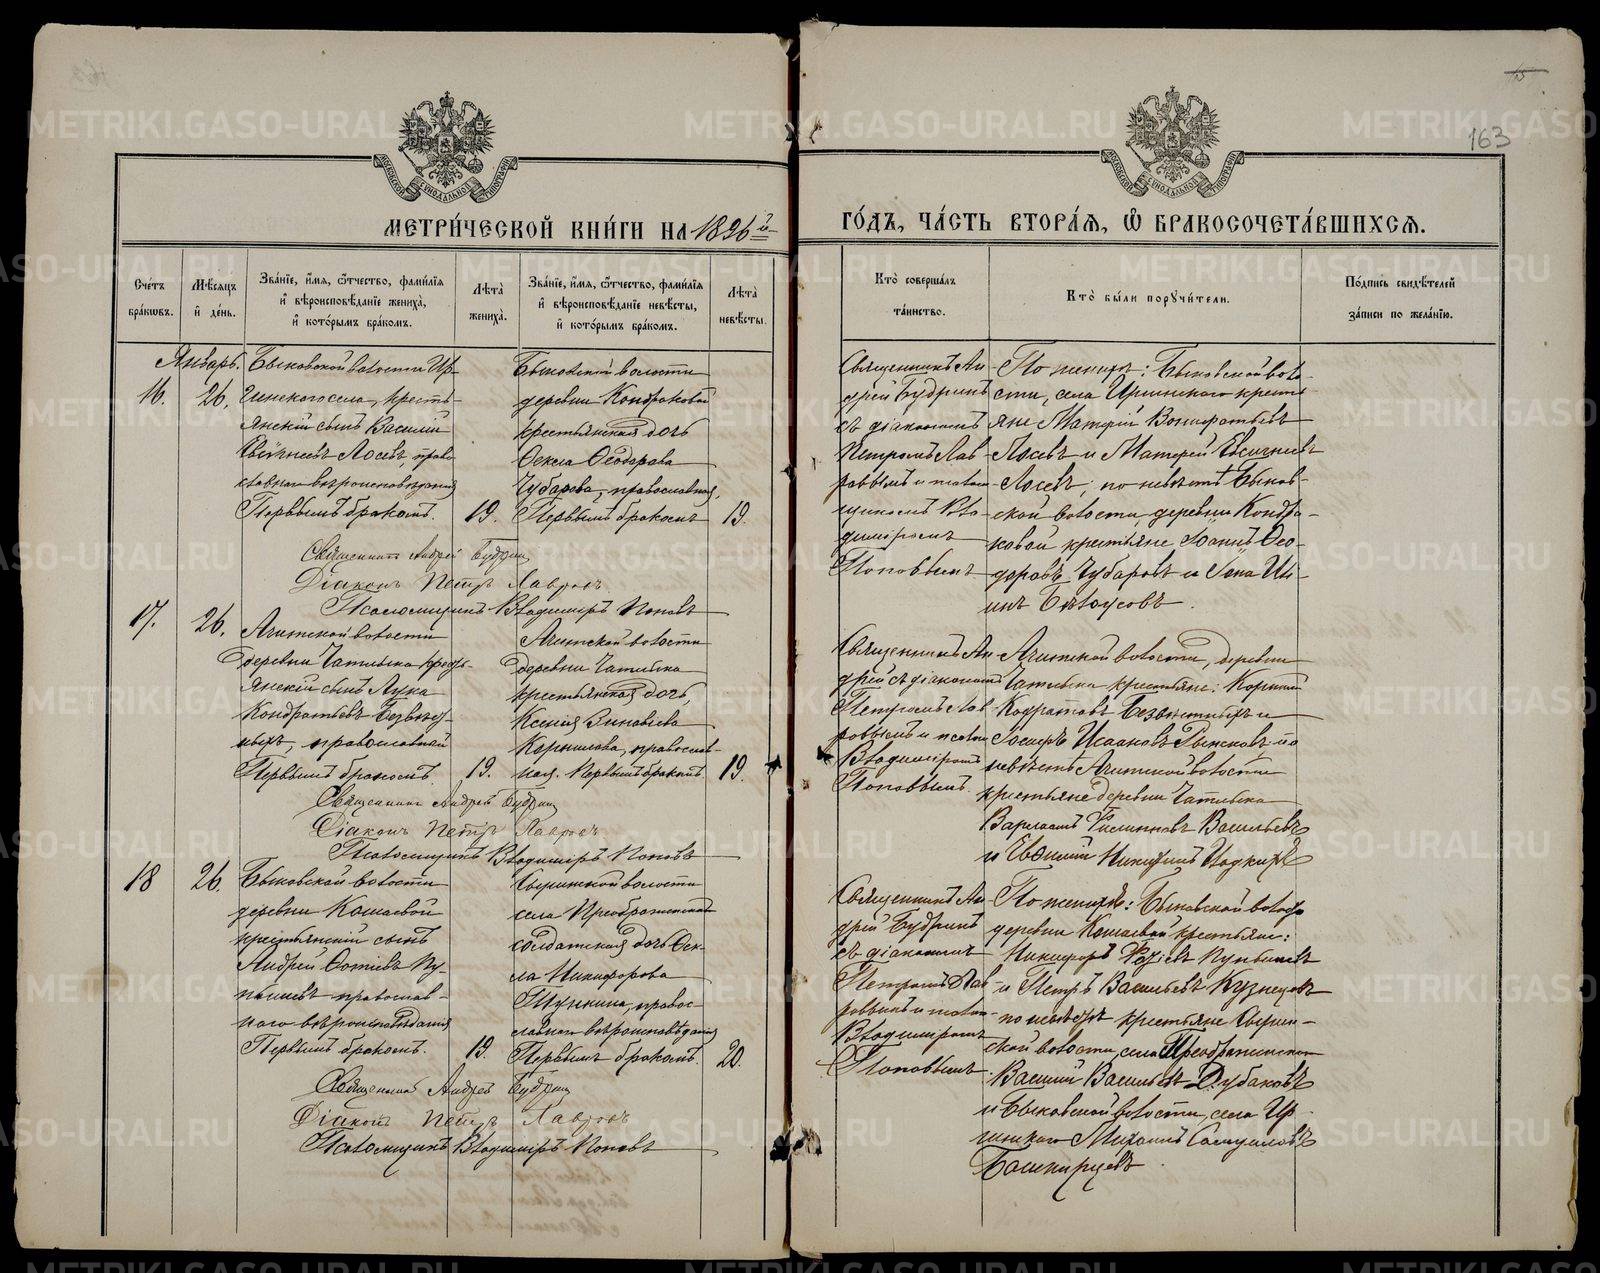 163
МЕТРИ́ЧЕСКОЙ КНИ́ГИ НА 1896й
ГО́ДЪ, ЧА́СТЬ ВТОРА́Я, Ѡ БРАКОСОЧЕТА́ВШИХСЯ.
Сче́тъ бра́кѡвъ.
Мѣ́сяцъ и҆ де́нь.
Зва́нїе, и҆́мя, ѻ҆́тчество, фами́лїя
и҆ вѣроисповѣ́данїе жениха̀,
и҆ кото́рымъ бра́комъ.
Лѣ́та жениха̀.
Зва́нїе, и҆́мя, ѻ҆́тчество, фами́лїя
и҆ вѣроисповѣ́данїе невѣ́сты,
и҆ кото́рымъ бра́комъ.
Лѣ́та невѣ́сты.
Кто̀ соверша́лъ
та́инство.
Кто̀ бы́ли порꙋчи́тели.
По́дпись свидѣ́телей
за́писи по жела́нїю.
Январь.
16.
26.
Быковской волости Ир-
гинского села, кресть-
янскій сынъ Василий
Лосевъ, право-
славнаго вѣроисповѣданія
Первымъ бракомъ.
19.
Быковской волости
деревни Кондраковой
крестьянская дочь
Ѳекла Ѳеодорова
Чубарова, православная,
Первымъ бракомъ
19.
Священникъ Ан-
дрей Будринъ
съ діакономъ
Петромъ Лав-
ровымъ и псалом-
щикомъ Вла-
диміромъ
Поповымъ
По женихѣ: Быковской воло-
сти, села Иргинского кресть-
яне Матѳій Вонифатьевъ
Лосевъ и Матѳей
Лосевъ, по невѣстѣ Быков-
ской волости, деревни Кондра-
ковой крестьяне Іоаннъ Ѳео-
доровъ Чубаровъ и
Бѣлоусовъ.
Священникъ Андрей Будринъ
Діаконъ Петръ Лавровъ
Псаломщикъ Владиміръ Поповъ
17.
26.
Ачитской волости
деревни Чатлыка кресть-
янскій сынъ Лука
Кондратьевъ Безвѣст-
ныхъ, православный
Первымъ бракомъ
19.
Ачитской волости
деревни Чатлыка
крестьянская дочь,
Ксенія Зиновіева
Корнилова, православ-
ная. Первымъ бракомъ.
19.
Священникъ Ан-
дрей съ діакономъ
Петромъ Лав-
ровымъ и псалом
Владиміромъ
Поповымъ.
Ачитской волости, деревни
Чатлыка крестьяне:
Безвѣстныхъ и
Іосифъ Исааковъ по
невѣстѣ Ачитской волости
крестьяне деревни Чатлыка
Варлаамъ Филипповъ Васильевъ
и
Священникъ Андрей Будринъ
Діаконъ Петръ Лавровъ
Псаломщикъ Владиміръ Поповъ
18
26.
Быковской волости
деревни Кошаевой
крестьянскій сынъ
Андрей Фотіевъ Пу-
православ-
наго вѣроисповѣданія
Первымъ бракомъ.
19.
волости
села Преображенскаго
солдатская дочь Ѳек-
ла Никифорова
правос-
лавнаго вѣроисповѣданія
Первымъ бракомъ.
20.
Священникъ Ан-
дрей Будринъ
съ діакономъ
Петромъ Лав-
ровымъ и псалом-
Владиміромъ
Поповымъ.
По женихѣ: Быковской волости
деревни Кошаевой крестьяне:
Никифоръ
и Петръ Васильевъ Кузнецовъ
по невѣстѣ крестьяне
ской волости, села Преображенскаго
Василій Васильевъ Дубаковъ
и Быковской волости, села Ир-
гинскаго Михаилъ Самуиловъ
Башкирцевъ.
Священникъ Андрей Будринъ
Діаконъ Петръ Лавровъ
Псаломщикъ Владиміръ Поповъ
METRIKI.GASO-URAL.RU